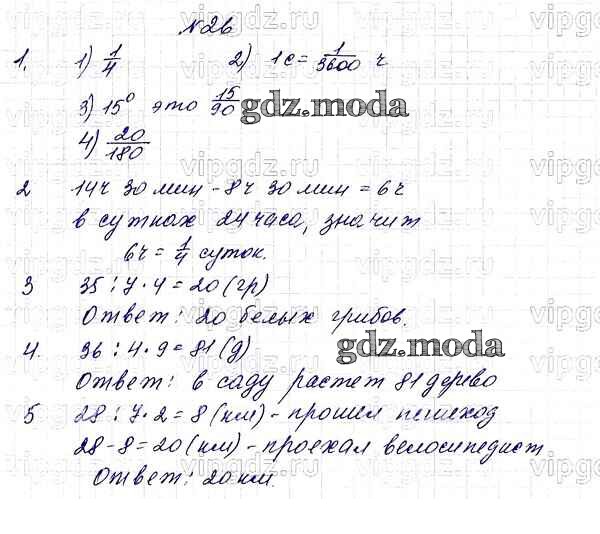 № 26
1. 1) 1/4 2) 1с = 1/3600 ч
3) 15° это 15/90
gdz.moda
4) 20/180
2 14ч 30 мин - 8ч 30 мин = 6ч
в сутках 24 часа, значит
6ч = 1/4 суток.
3 35 : 7 · 4 = 20 (гр)
Ответ: 20 белых грибов.
4. 36 : 4 · 9 = 81 (д)
gdz.moda
Ответ: в саду растет 81 дерево
5 28 : 7 · 2 = 8 (км) - прошел пешеход
28 - 8 = 20 (км) - проехал велосипедист
Ответ: 20 км.